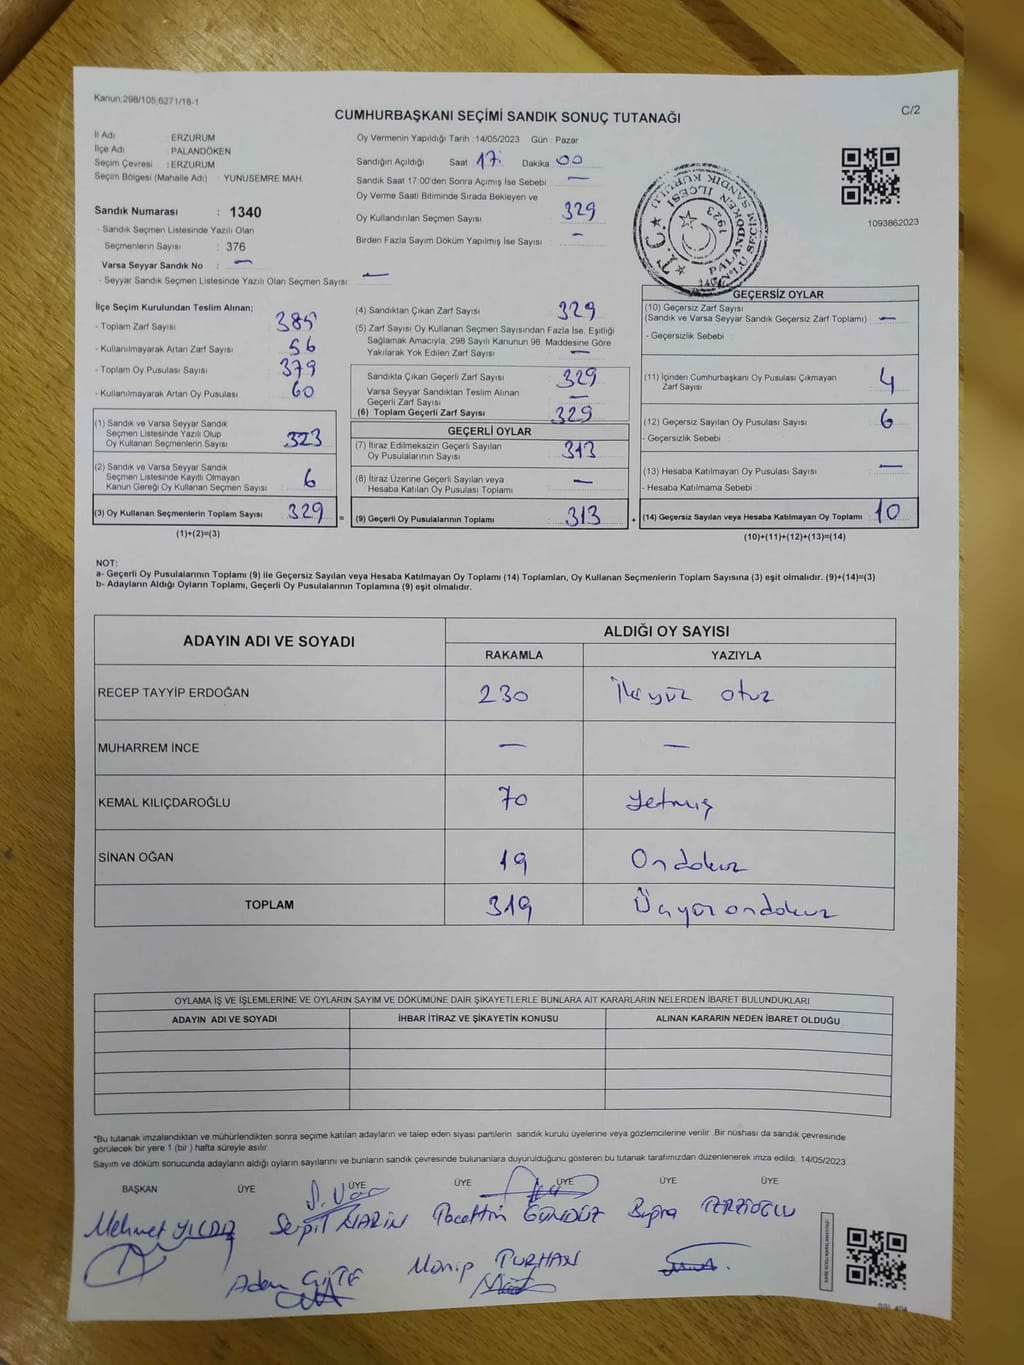 Kanun;298/105,6271/18-1
C/2
CUMHURBAŞKANI SEÇİMİ SANDIK SONUÇ TUTANAĞI
İl Adı : ERZURUM
İlçe Adı : PALANDÖKEN
Seçim Çevresi : ERZURUM
Seçim Bölgesi (Mahalle Adı) : YUNUSEMRE MAH.
Sandık Numarası : 1340
- Sandık Seçmen Listesinde Yazılı Olan
Seçmenlerin Sayısı : 376
Varsa Seyyar Sandık No : —
- Seyyar Sandık Seçmen Listesinde Yazılı Olan Seçmen Sayısı : —
Oy Vermenin Yapıldığı Tarih : 14/05/2023 Gün : Pazar
Sandığın Açıldığı Saat 17 Dakika 00
Sandık Saat 17:00'den Sonra Açımış İse Sebebi : —
Oy Verme Saati Bitiminde Sırada Bekleyen ve
Oy Kullandırılan Seçmen Sayısı : 329
Birden Fazla Sayım Döküm Yapılmış İse Sayısı : —
T.C.
PALANDÖKEN İLÇESİ
SANDIK KURULU
1923
1093862023
İlçe Seçim Kurulundan Teslim Alınan;
- Toplam Zarf Sayısı : 385
- Kullanılmayarak Artan Zarf Sayısı : 56
- Toplam Oy Pusulası Sayısı : 379
- Kullanılmayarak Artan Oy Pusulası : 60
(1) Sandık ve Varsa Seyyar Sandık
Seçmen Listesinde Yazılı Olup
Oy Kullanan Seçmenlerin Sayısı : 323
(2) Sandık ve Varsa Seyyar Sandık
Seçmen Listesinde Kayıtlı Olmayan
Kanun Gereği Oy Kullanan Seçmen Sayısı : 6
(3) Oy Kullanan Seçmenlerin Toplam Sayısı : 329
(1)+(2)=(3)
(4) Sandıktan Çıkan Zarf Sayısı : 329
(5) Zarf Sayısı Oy Kullanan Seçmen Sayısından Fazla İse, Eşitliği
Sağlamak Amacıyla, 298 Sayılı Kanunun 98. Maddesine Göre
Yakılarak Yok Edilen Zarf Sayısı : —
Sandıkta Çıkan Geçerli Zarf Sayısı : 329
Varsa Seyyar Sandıktan Teslim Alınan
Geçerli Zarf Sayısı : —
(6) Toplam Geçerli Zarf Sayısı : 329
GEÇERLİ OYLAR
(7) İtiraz Edilmeksizin Geçerli Sayılan
Oy Pusulalarının Sayısı : 313
(8) İtiraz Üzerine Geçerli Sayılan veya
Hesaba Katılan Oy Pusulası Toplamı : —
= (9) Geçerli Oy Pusulalarının Toplamı : 313
GEÇERSİZ OYLAR
(10) Geçersiz Zarf Sayısı
(Sandık ve Varsa Seyyar Sandık Geçersiz Zarf Toplamı) : —
- Geçersizlik Sebebi :
(11) İçinden Cumhurbaşkanı Oy Pusulası Çıkmayan
Zarf Sayısı : 4
(12) Geçersiz Sayılan Oy Pusulası Sayısı : 6
- Geçersizlik Sebebi :
(13) Hesaba Katılmayan Oy Pusulası Sayısı : —
- Hesaba Katılmama Sebebi :
+ (14) Geçersiz Sayılan veya Hesaba Katılmayan Oy Toplamı : 10
(10)+(11)+(12)+(13)=(14)
NOT:
a- Geçerli Oy Pusulalarının Toplamı (9) ile Geçersiz Sayılan veya Hesaba Katılmayan Oy Toplamı (14) Toplamları, Oy Kullanan Seçmenlerin Toplam Sayısına (3) eşit olmalıdır. (9)+(14)=(3)
b- Adayların Aldığı Oyların Toplamı, Geçerli Oy Pusulalarının Toplamına (9) eşit olmalıdır.
ADAYIN ADI VE SOYADI ALDIĞI OY SAYISI
RAKAMLA YAZIYLA
RECEP TAYYİP ERDOĞAN 230 İkiyüz otuz
MUHARREM İNCE — —
KEMAL KILIÇDAROĞLU 70 Yetmiş
SİNAN OĞAN 19 Ondokuz
TOPLAM 319 Üçyüzondokuz
OYLAMA İŞ VE İŞLEMLERİNE VE OYLARIN SAYIM VE DÖKÜMÜNE DAİR ŞİKAYETLERLE BUNLARA AİT KARARLARIN NELERDEN İBARET BULUNDUKLARI
ADAYIN ADI VE SOYADI İHBAR İTİRAZ VE ŞİKAYETİN KONUSU ALINAN KARARIN NEDEN İBARET OLDUĞU
*Bu tutanak imzalandıktan ve mühürlendikten sonra seçime katılan adayların ve talep eden siyasi partilerin sandık kurulu üyelerine veya gözlemcilerine verilir. Bir nüshası da sandık çevresinde
görülecek bir yere 1 (bir ) hafta süreyle asılır.
Sayım ve döküm sonucunda adayların aldığı oyların sayılarını ve bunların sandık çevresinde bulunanlara duyurulduğunu gösteren bu tutanak tarafımızdan düzenlenerek imza edildi. 14/05/2023
BAŞKAN ÜYE ÜYE ÜYE ÜYE ÜYE ÜYE
Mehmet YILDIZ Serpil NARİN GÜNDÜZ Büşra TERZİOĞLU
Adem